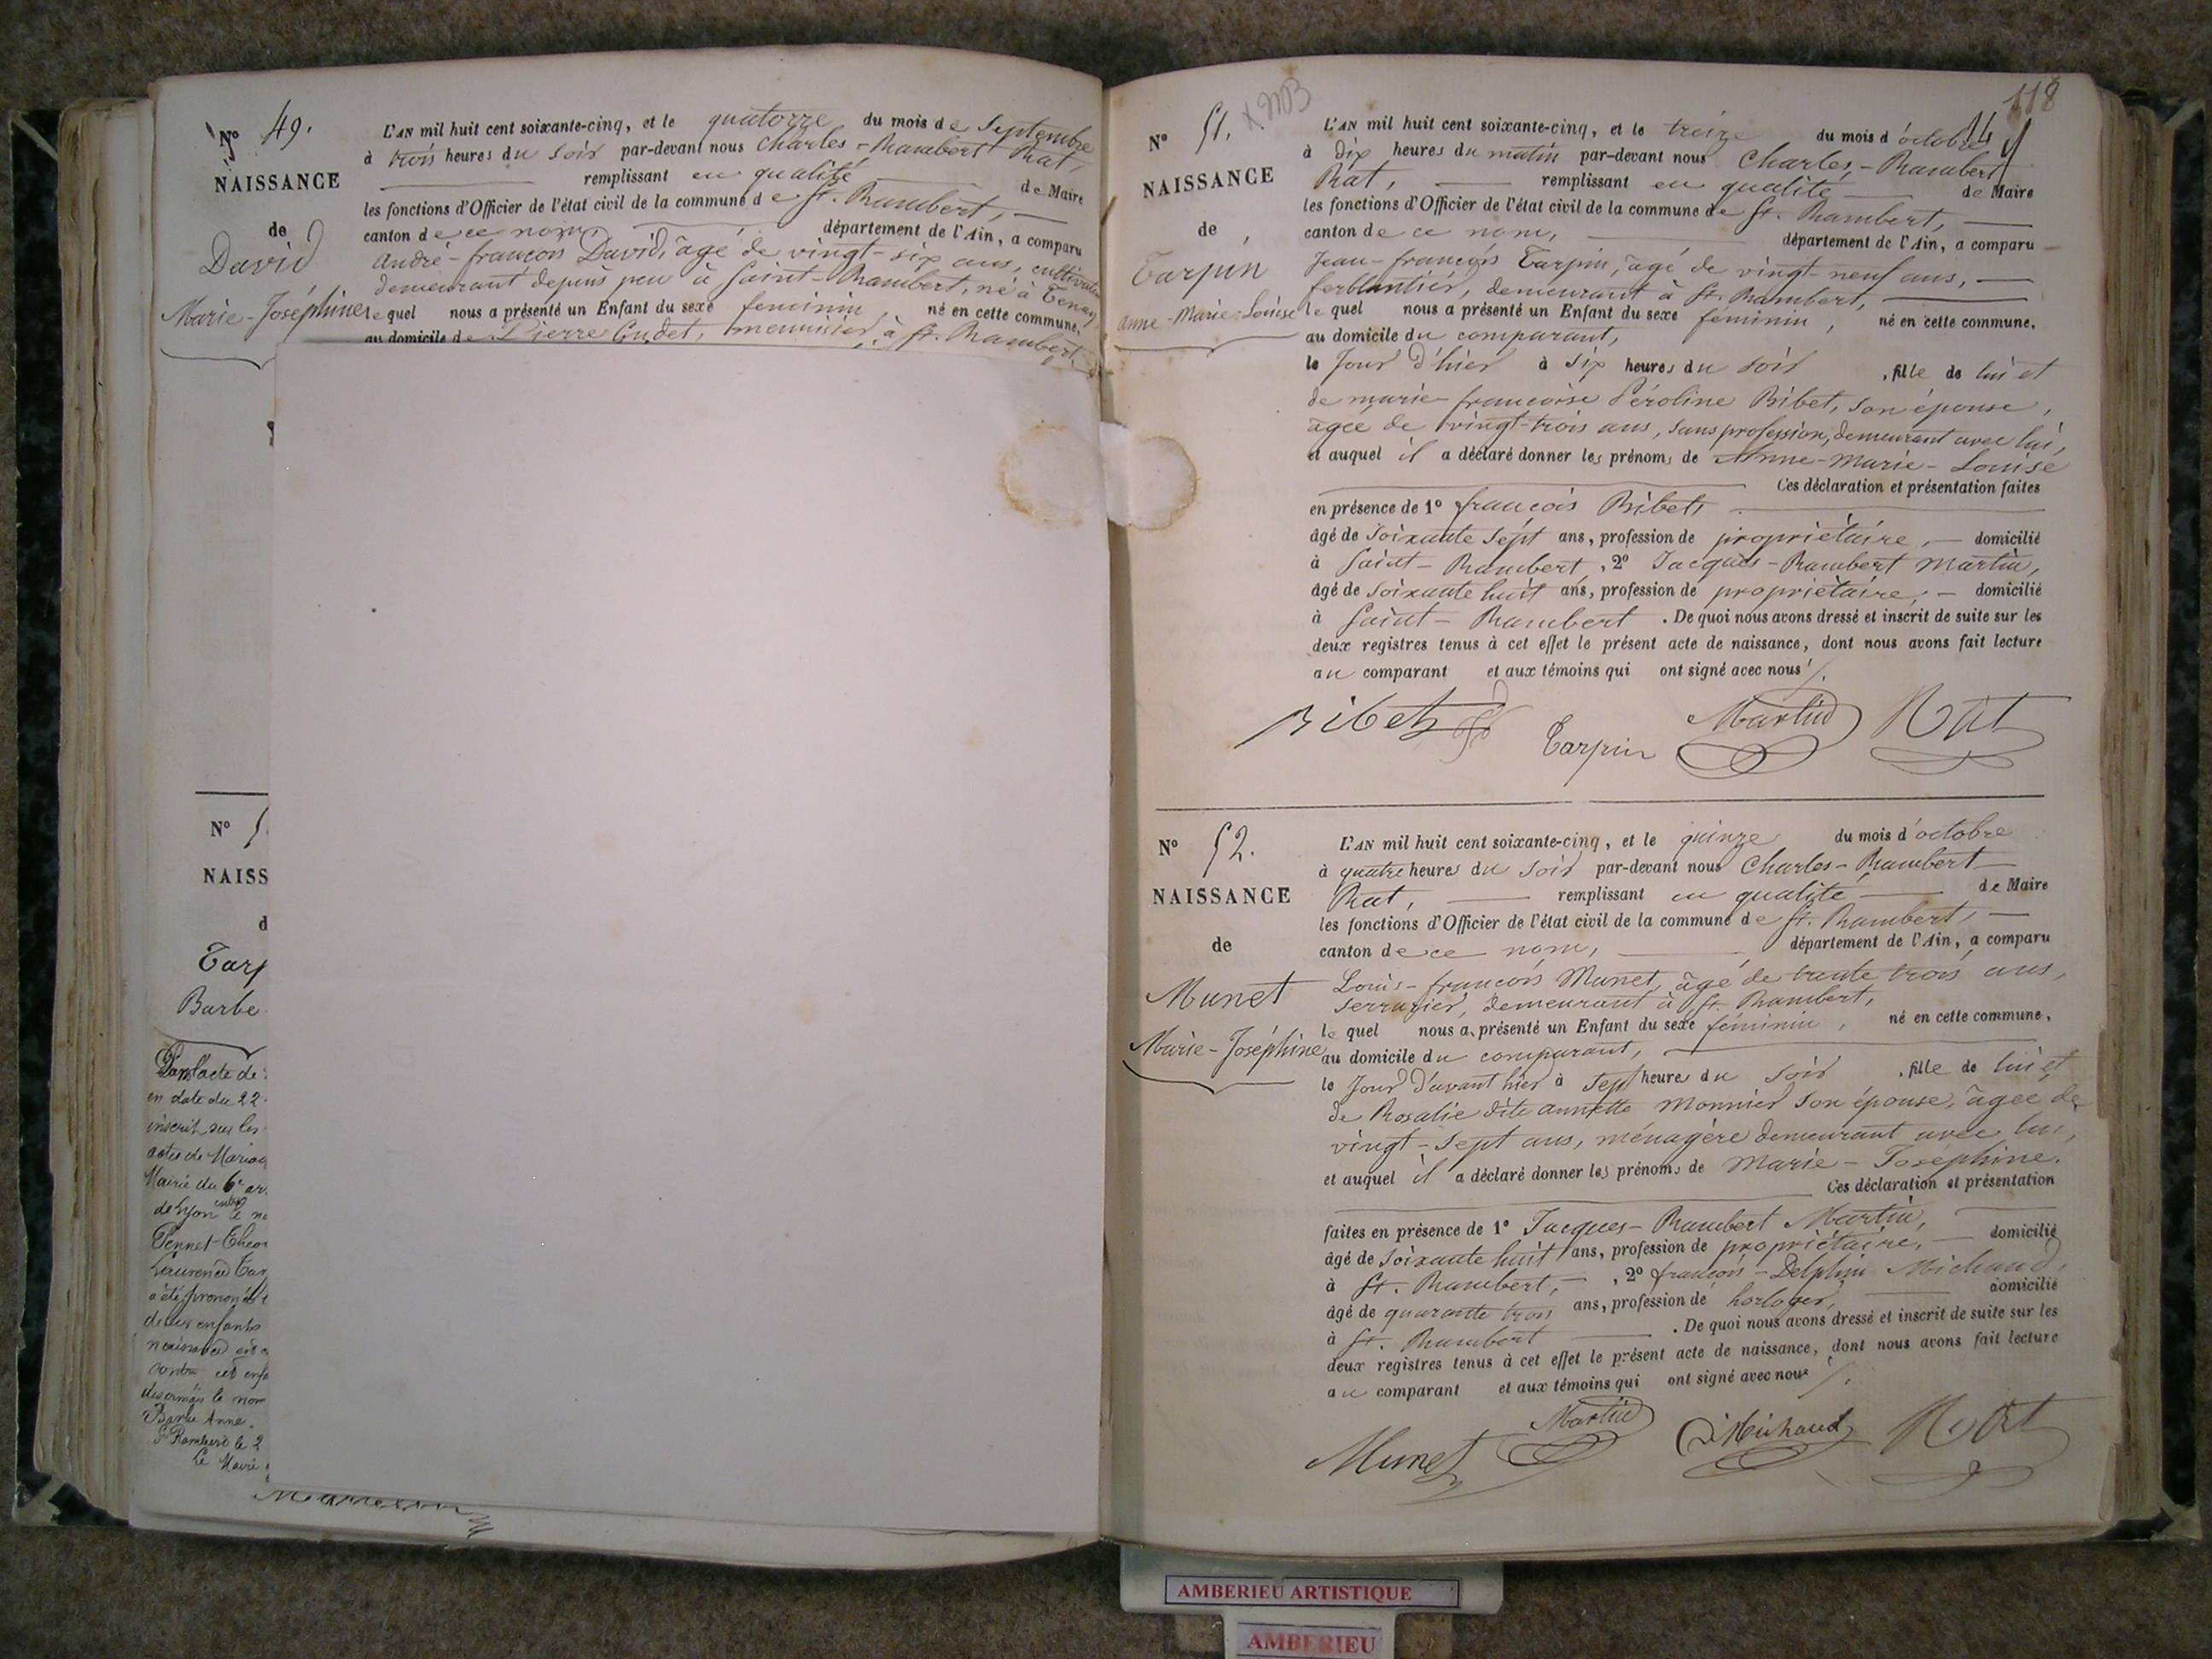 Nº 49.
NAISSANCE
de
David
Marie-Joséphine
L'AN mil huit cent soixante-cinq, et le quatorze du mois de Septembre
à trois heures du soir par-devant nous Charles-Rambert Rat,
remplissant en qualité de Maire
les fonctions d'Officier de l'état civil de la commune de St. Rambert,
canton de ce nom, département de l'Ain, a comparu
André-françois David, âgé de vingt-six ans, cultivateur
demeurant depuis peu à Saint-Rambert, né à Tenay
lequel nous a présenté un Enfant du sexe feminin, né en cette commune,
au domicile de Pierre Cudet, meunier, à St. Rambert
Nº
NAISS
d
Tarp
Barbe
Dans l'acte de
en date du 22
inscrit sur les
actes de Mariag
Mairie du 6e ar
de Lyon entre le
Pennet-Theo
Laurence Tar
a été prononcé
deux enfants
desormais le nom
Barbe Anne.
St Rambert le 2
Le Maire
118
14
X MB
Nº 51.
NAISSANCE
de
Tarpin
Anne-Marie-Louise
L'AN mil huit cent soixante-cinq, et le treize du mois d'octobre
à dix heures du matin par-devant nous Charles-Rambert
Rat, remplissant en qualité de Maire
les fonctions d'Officier de l'état civil de la commune de St. Rambert,
canton de ce nom, département de l'Ain, a comparu
Jean-françois Tarpin, âgé de vingt-neuf ans,
ferblantier, demeurant à St. Rambert,
lequel nous a présenté un Enfant du sexe féminin, né en cette commune,
au domicile du comparant,
le Jour d'hier à six heures du soir, fille de lui et
de marie-francoise Péroline Ribet, son épouse,
agée de vingt-trois ans, sans profession, demeurant avec lui,
et auquel il a déclaré donner les prénoms de Anne-Marie-Louise
Ces déclaration et présentation faites
en présence de 1º françois Ribet
âgé de soixante sept ans, profession de propriétaire, domicilié
à Saint-Rambert, 2º Jacques-Rambert Martin,
âgé de soixante huit ans, profession de propriétaire, domicilié
à Saint-Rambert. De quoi nous avons dressé et inscrit de suite sur les
deux registres tenus à cet effet le présent acte de naissance, dont nous avons fait lecture
au comparant et aux témoins qui ont signé avec nous
Ribet Tarpin Martin Rat
Nº 52.
NAISSANCE
de
Munet
Marie-Joséphine
L'AN mil huit cent soixante-cinq, et le quinze du mois d'octobre
à quatre heures du soir par-devant nous Charles-Rambert
Rat, remplissant en qualité de Maire
les fonctions d'Officier de l'état civil de la commune de St. Rambert,
canton de ce nom, département de l'Ain, a comparu
Louis-françois Munet, âgé de trente trois ans,
serrurier, demeurant à St. Rambert,
lequel nous a présenté un Enfant du sexe féminin, né en cette commune,
au domicile du comparant,
le Jour d'avant hier à sept heures du soir, fille de lui et
de Rosalie dite annette Monnier son épouse, agée de
vingt-sept ans, ménagère demeurant avec lui,
et auquel il a déclaré donner les prénoms de Marie-Joséphine.
Ces déclaration et présentation
faites en présence de 1º Jacques-Rambert Martin,
âgé de soixante huit ans, profession de propriétaire, domicilié
à St. Rambert, 2º françois-Delphin Michaud,
âgé de quarante trois ans, profession de horloger, domicilié
à St. Rambert. De quoi nous avons dressé et inscrit de suite sur les
deux registres tenus à cet effet le présent acte de naissance, dont nous avons fait lecture
au comparant et aux témoins qui ont signé avec nous
Munet Martin Michaud Rat
AMBERIEU ARTISTIQUE
AMBERIEU